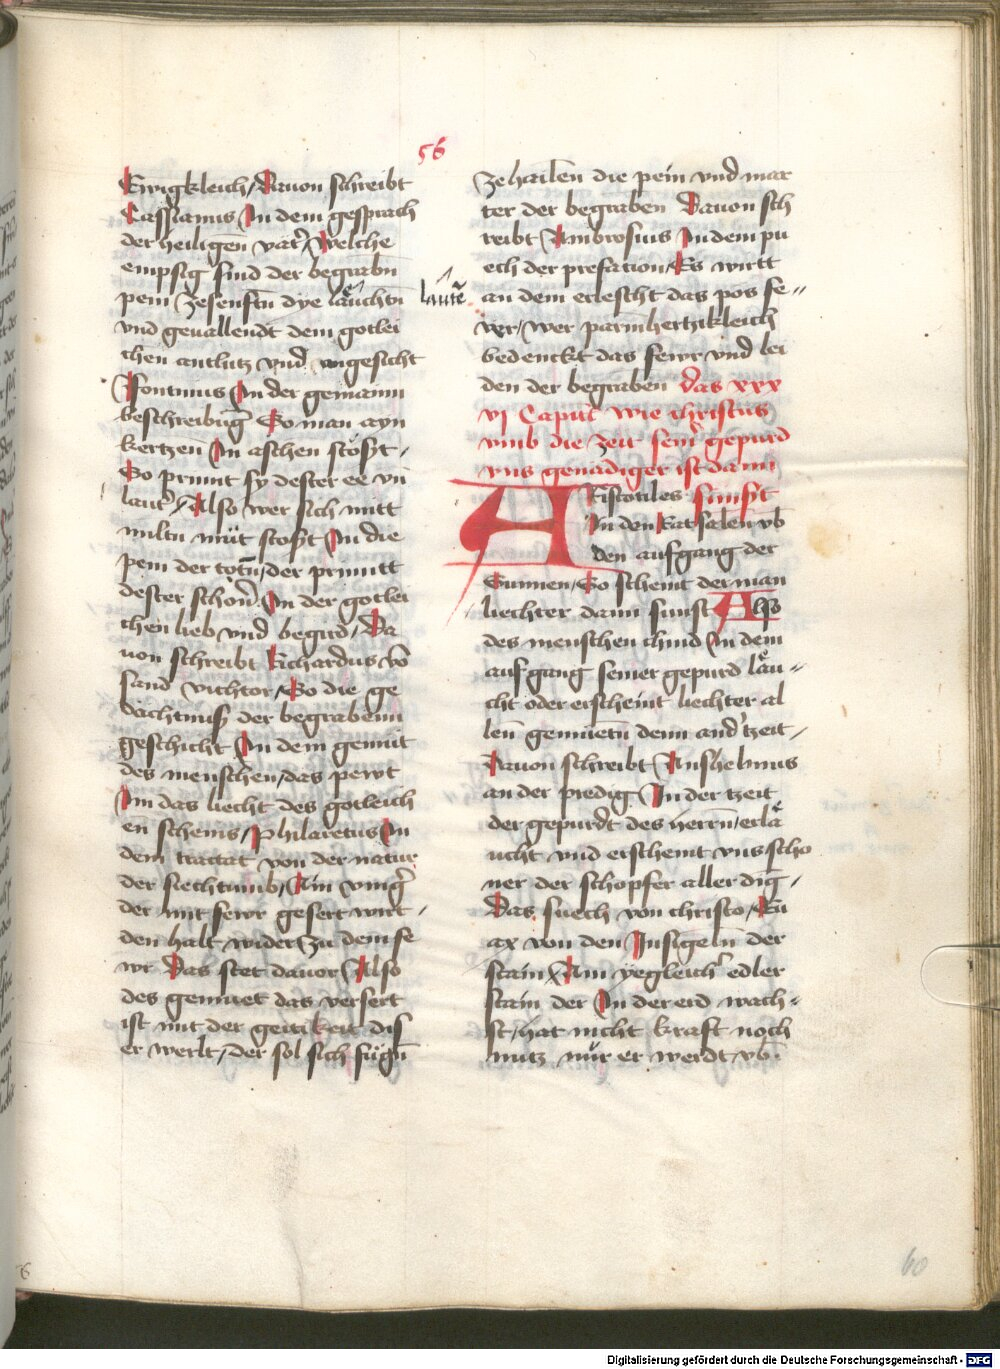 56
Ewigkleich / Dauon schreibt
Cassianus In dem gesprach
der heiligen vät / Welche
empsig sind der begrabn̄
pein zesenftn̄ dye läuchtn̄
vnd geuallendt dem gotlei
chen antlutz vnd angesicht
In der gemainn
beschreibūg So man ayn
kertzen In aschen stosst /
So prinnt sy dester ee vn̄
laut / Also wer sich mitt
miltn̄ müt stosst In die
pein der totn̄ / der prinntt
dester schon̄ In der gotlei
chen lieb vnd begird / Da
uon schreibt Richardus vō
sand vichtor / So die ge
dächtnuß der begrabenn
geschicht In dem gemüt
des menschen / das pewt
Im das liecht des gotleich
en scheins / Philaretus In
dem tractat von der natur
der siechtumb / Ain ving
der mit fewr gesert wirt /
den halt wider zu dem fe
wr Das stet dauor / Also
des gemuet das versert
ist mit der geitikeit dis
er werlt / der sol sich fügn̄
lautē
zehailen die pein vnd mar
ter der begraben Dauon sch
reibt Ambrosius In dem pu
ech der prefation / Es wirtt
an dem erlescht das pos fe-
wr / wer parmhertzikleich
bedenckt das fewr vnd lei
den der begraben das xxx
vj Capitl wie christus
vmb die zeit seinr gepurd
vns genädiger ist dann
Aristotiles sunst
In den Ratsalen vō
den aufgang der
Sunnen / So scheint der man
liechter dann sunst Also
des menschen chind In dem
aufgang seiner gepurd läu-
cht oder erscheint liechter al
len̄ gemuetn̄ denn and tzeit /
Dauon schreibt Anshelmus
an der predig In der tzeit
der gepurdt des herrn̄ / erlä
ucht vnd erscheint vns scho
ner der schopfer aller ding /
Das suech von christo / Eu
ax von den Insigeln̄ der
stain / Ain yegleich edler
stain der In der erd wach-
st / hat nicht kraft noch
nutz nür er werdt vō
60
Digitalisierung gefördert durch die Deutsche Forschungsgemeinschaft - DFG